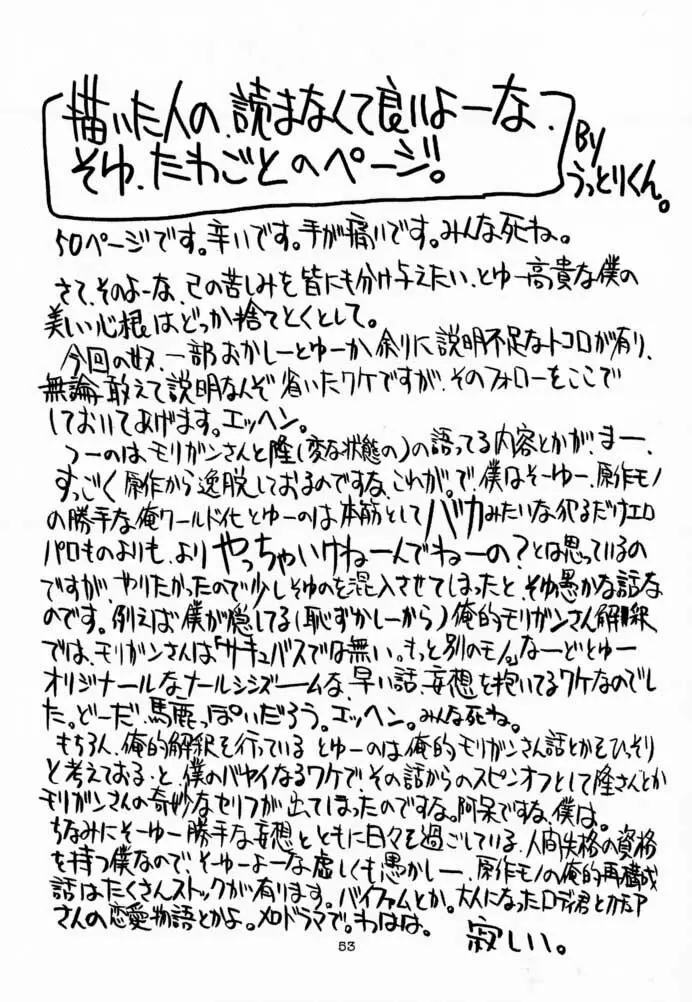 描いた人の、読まなくて良いよーな、
そゆ、たわごとのページ!。
By
うっとりくん。
50ページです。辛いです。手が痛いです。みんな死ね。
さて、そのよーな、己の苦しみを皆にも分け与えたい、とゆー高貴な僕の
美しい心根はどっか捨てとくとして。
今回の奴、一部おかしーとゆーか、余りに説明不足なトコロが有り、
無論、敢えて説明なんぞ省いたワケですが、そのフォローをここで
しておいてあげます。エッヘン。
つーのは、モリガンさんと隆(変な状態の)の語ってる内容とかが、まー、
すっごく原作から逸脱しておるのですな、これが。で、僕はそーゆー、原作モノ
の勝手な俺ワールド化とゆーのは本筋としてバカみたいな犯るだけエロ
パロものよりも、よりやっちゃいけねーんでねーの?とは思っているの
ですが、やりたかったので少しそゆのを混入させてしまったと、そゆ愚かな話な
のです。例えば僕が隠してる(恥ずかしーから)俺的モリガンさん解釈
では、モリガンさんは「サキュバスでは無い。もっと別のモノ」なーどとゆー
オリジナールなナールシシズームな、早い話、妄想を抱いてるワケなのでし
た。どーだ、馬鹿っぽいだろう。エッヘン。みんな死ね。
もちろん、俺的解釈を行っているとゆーのは俺的モリガンさん話とかをひっそり
と考えておると、僕のバヤイなるワケで、その話からのスピンオフとして隆さんとか
モリガンさんの奇妙なセリフが出てしまったのですな。阿呆ですな、僕は。
ちなみにそーゆー勝手な妄想とともに日々を過ごしている、人間失格の資格
を持つ僕なので、そーゆーよーな虚しくも愚かしー、原作モノの俺的再構成
話はたくさんストックが有ります。バイファムとか。大人になったロディ君とカチュア
さんの恋愛物語とかよ。メロドラマで。わはは。
寂しい。
53